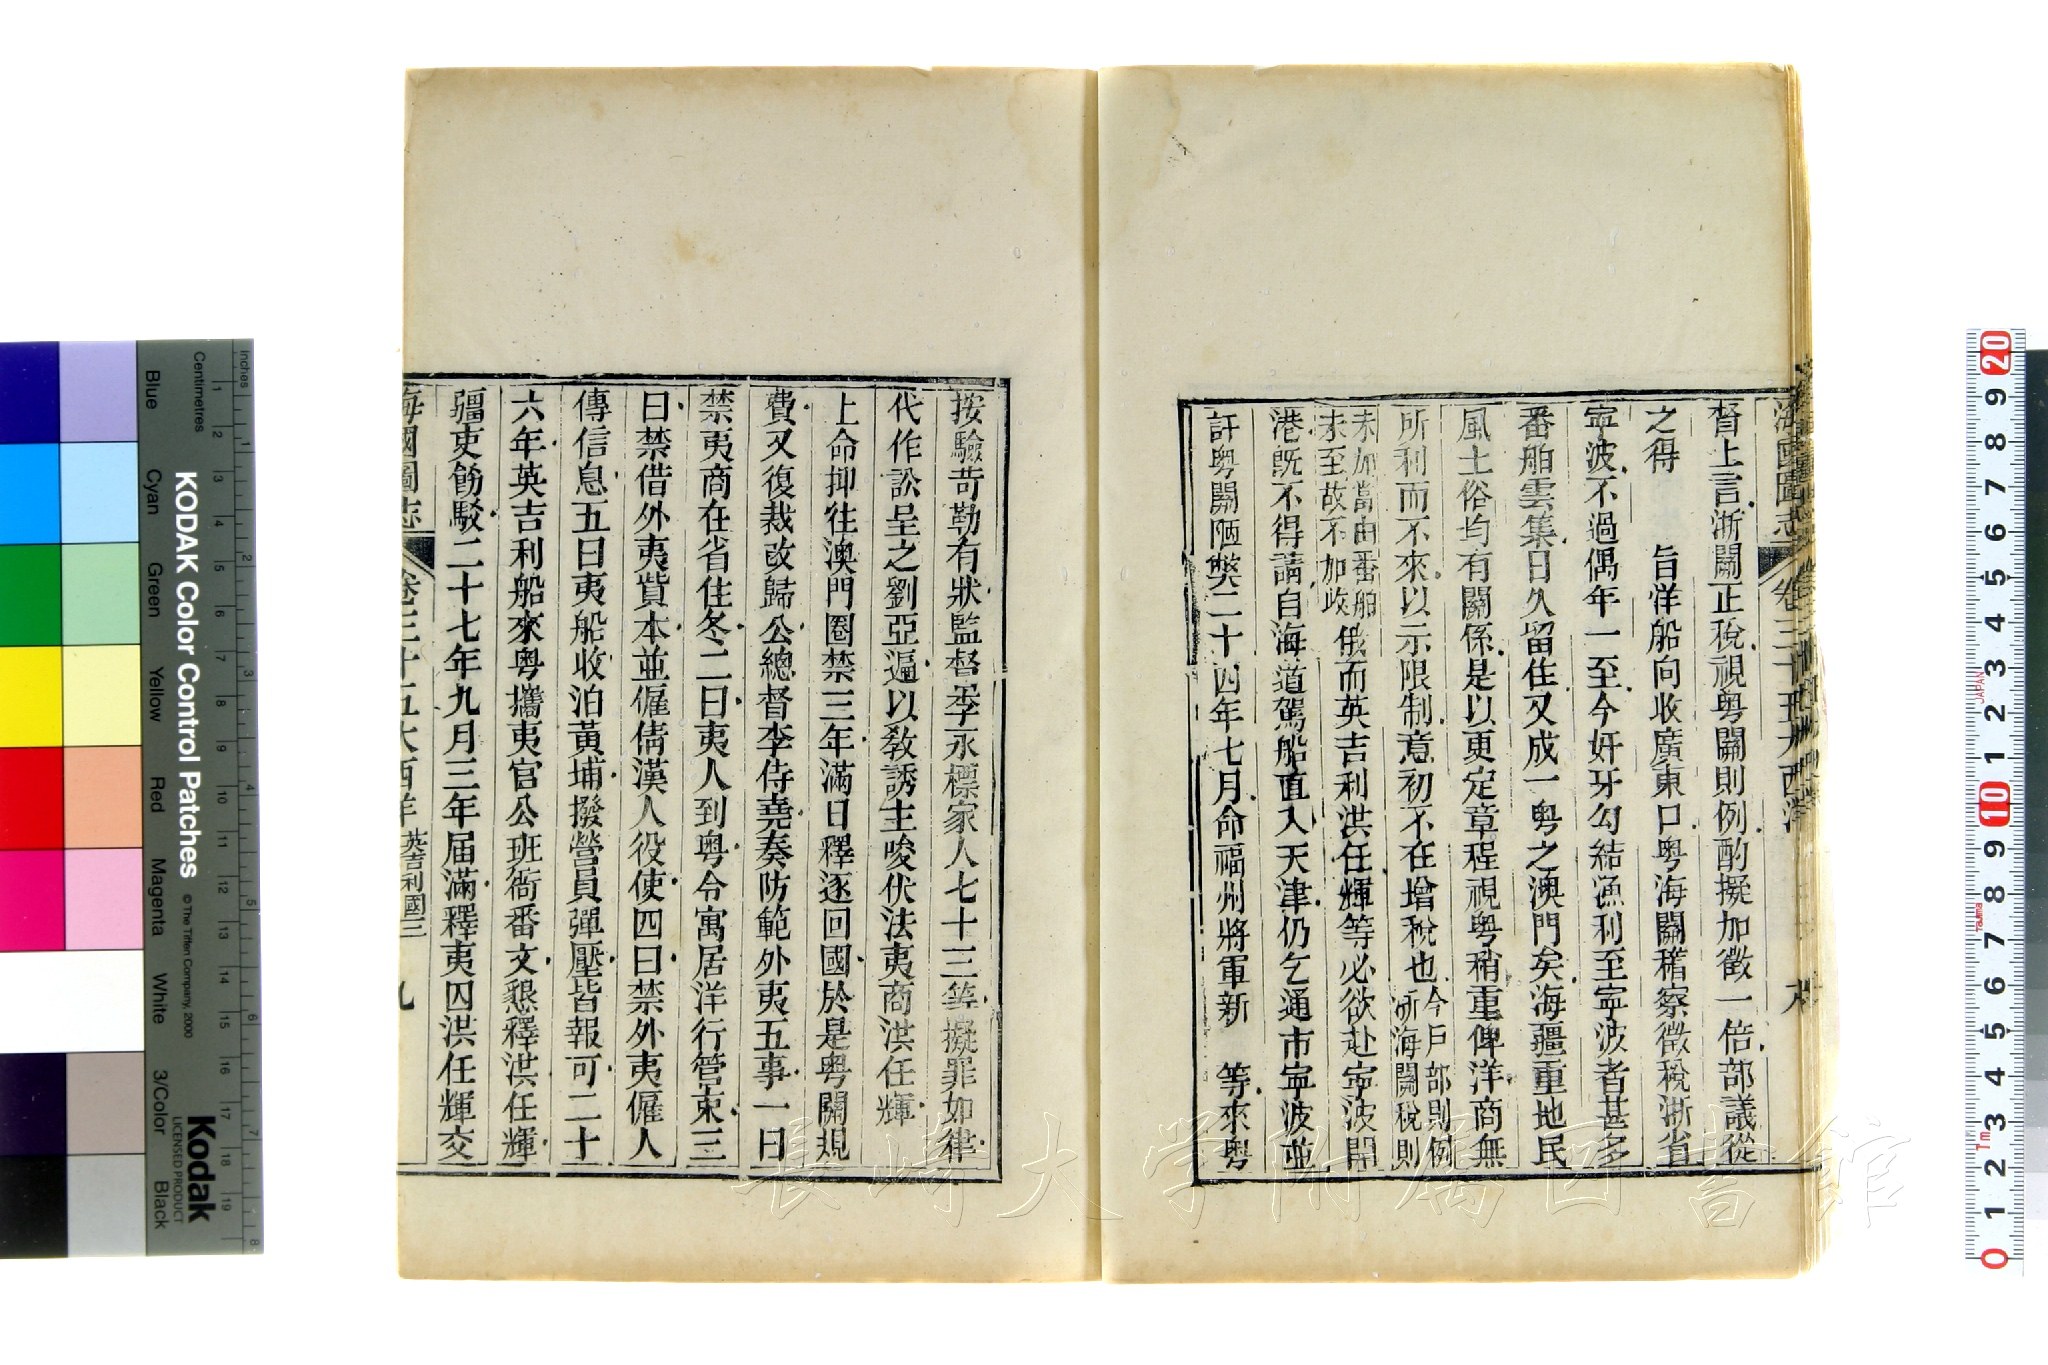 海國圖志 卷三十五大西洋
督上言浙關正稅視粵關則例酌擬加徵一倍部議從
之得 旨洋船向收廣東口粵海關稽察徵稅浙省
寧波不過偶年一至今奸牙勾結漁利至寧波者甚多
番舶雲集日久留住又成一粵之澳門矣海疆重地民
風土俗均有關係是以更定章程視粵稍重俾洋商無
所利而不來以示限制意初不在增稅也今戶部則例浙海關稅則
未加當由番舶未至故不加收俄而英吉利洪任輝等必欲赴寧波開
港既不得請自海道駕船直入天津仍乞通市寧波並
訐粵關陋弊二十四年七月命福州將軍新 等來粵
按驗苛勒有狀監督李永標家人七十三等擬罪如律
代作訟呈之劉亞遍以敎誘主唆伏法夷商洪任輝
上命抑往澳門圈禁三年滿日釋逐回國於是粵關規
費又復裁改歸公總督李侍堯奏防範外夷五事一曰
禁夷商在省住冬二曰夷人到粵令寓居洋行管束三
曰禁借外夷貲本並僱倩漢人役使四曰禁外夷僱人
傳信息五曰夷船收泊黃埔撥營員彈壓皆報可二十
六年英吉利船來粵攜夷官公班衙番文懇釋洪任輝
疆吏飭駁二十七年九月三年屆滿釋夷囚洪任輝交
海國圖志 卷三十五大西洋 英吉利國三 九
KODAK Color Control Patches
© The Tiffen Company, 2000
Kodak
LICENSED PRODUCT
Inches
Centimetres
Blue
Cyan
Green
Yellow
Red
Magenta
White
3/Color
Black
長崎大学附属図書館
JAPAN